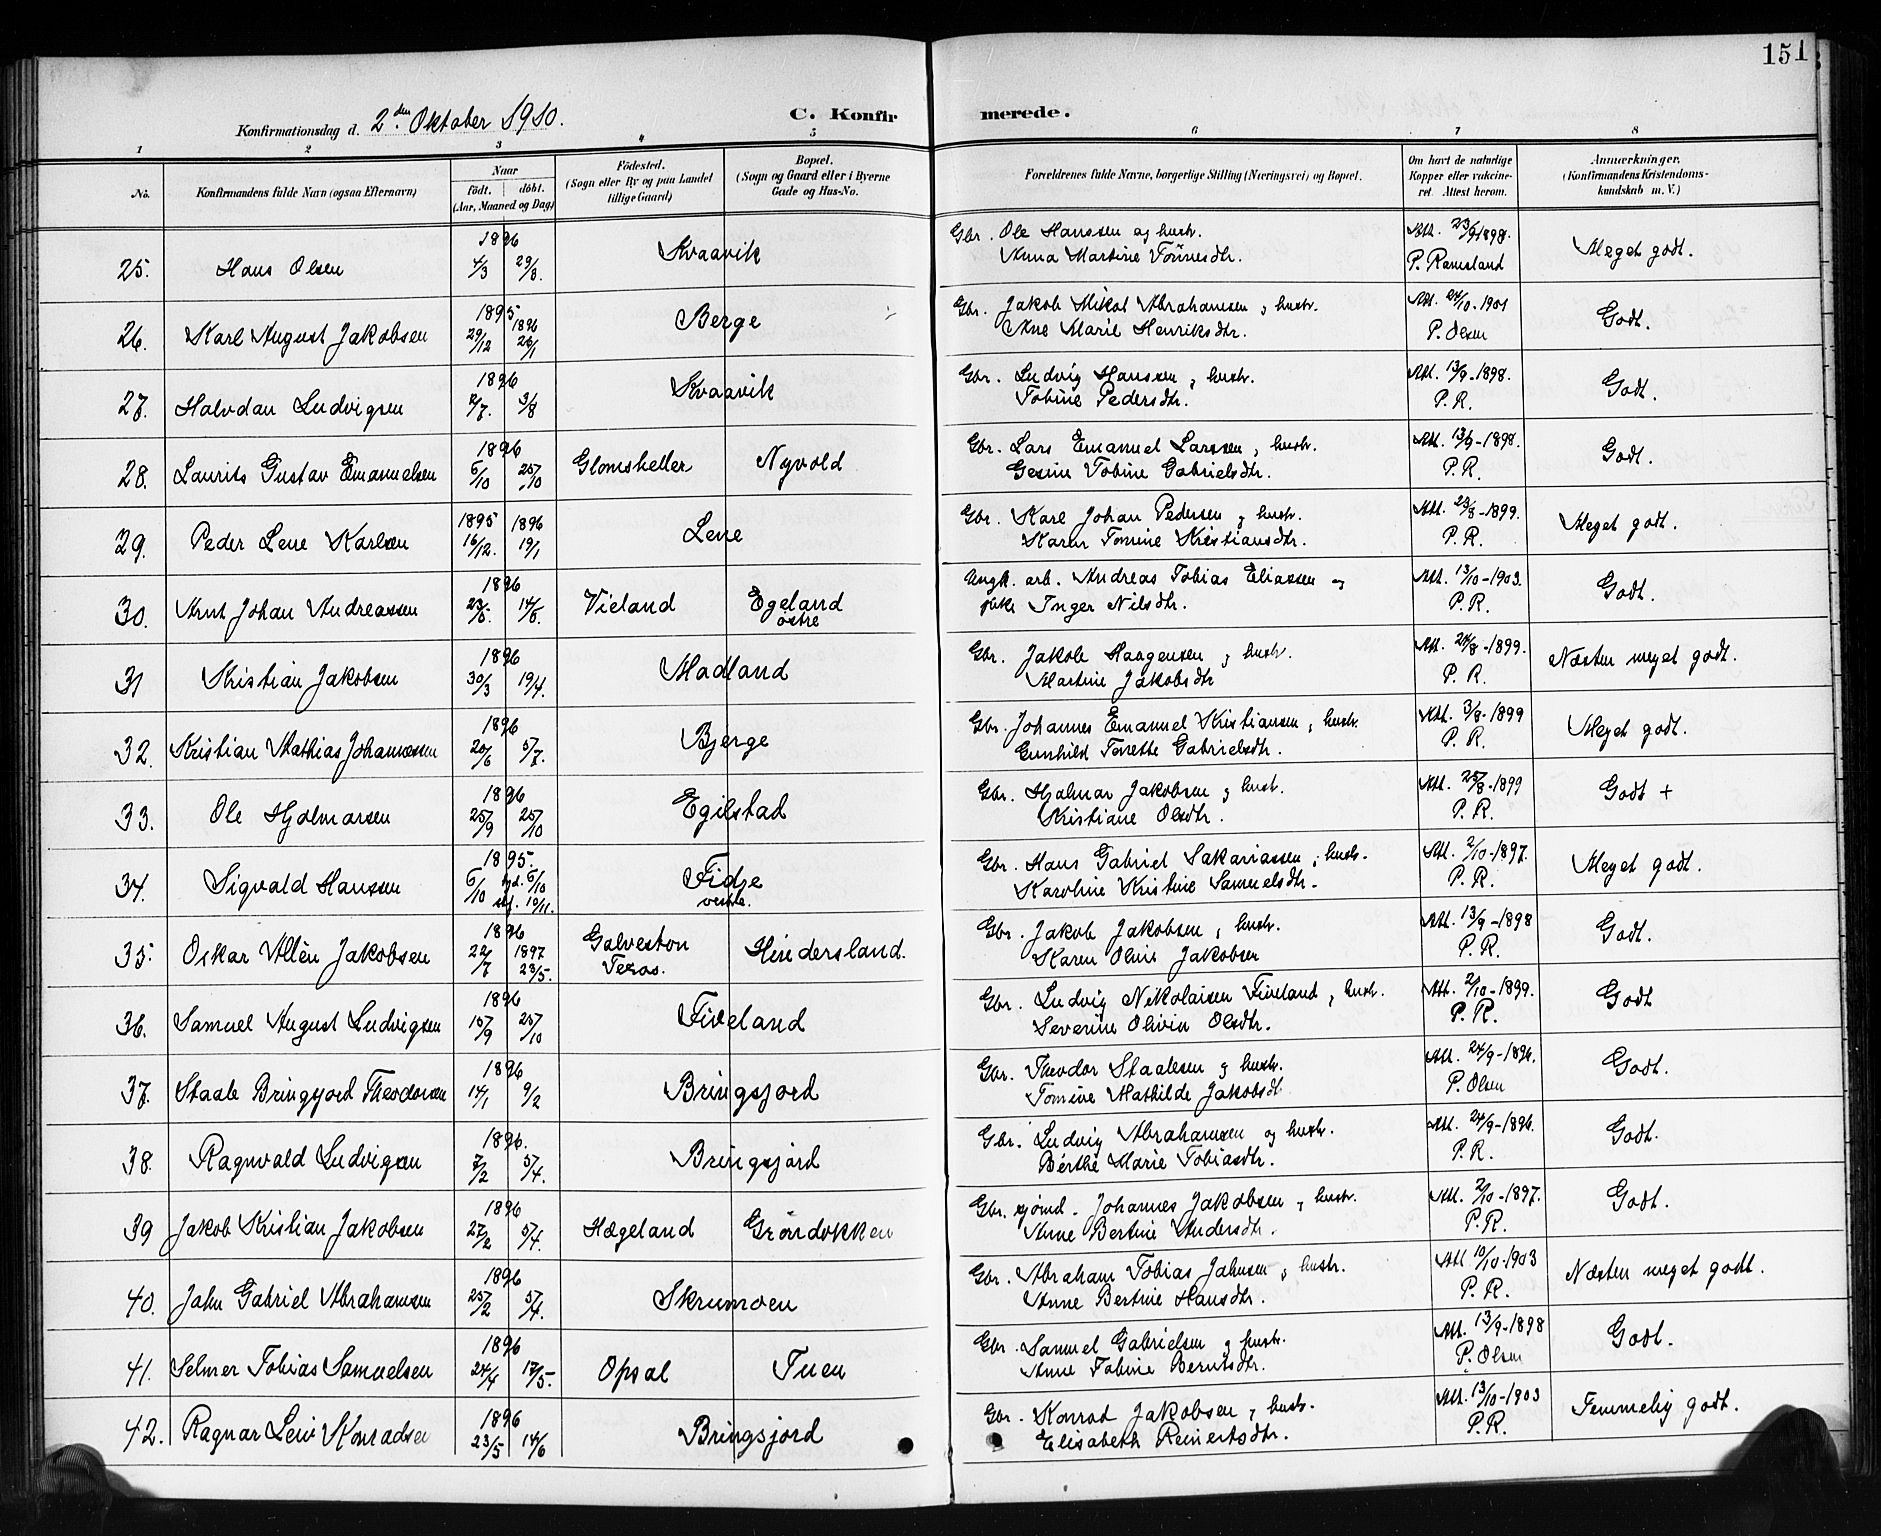 151
Konfirmationsdag d. 2den Oktober 1910.
C. Konfirmerede.
1 2 3 4 5 6 7 8
No. Konfirmandens fulde Navn (ogsaa Efternavn) Naar født. døbt. (Aar, Maaned og Dag) Födested. (Sogn eller By og paa Landet tillige Gaard) Bopæl. (Sogn og Gaard eller i Byerne Gade og Hus-No. Forældrenes fulde Navne, borgerlige Stilling (Næringsvei) og Bopæl. Om havt de naturlige Kopper eller vakcineret. Attest herom. Anmærkninger. (Konfirmandens Kristendomskundskab m. V.)
25. Hans Olsen 1896 4/3 29/3. Kvaavik Gbr. Ole Hanssen og hustr. Anna Martine Tönnesdtr. Att. 23/9 1898. P. Ramsland Meget godt.
26. Karl August Jakobsen 1895 29/12 1896 26/1 Berge Gbr. Jakob Mikal Abrahamsen, hustr. Ane Marie Henriksdtr. Att. 24/10-1901 P. Olsen Godt.
27. Halvdan Ludvigsen 1896 2/7. 3/8 Kvaavik Gbr. Ludvig Hanssen, hustr. Tobine Pedersdtr. Att. 13/9-1898. P. R. Godt.
28. Laurits Gustav Emanuelsen 1896 5/10 25/10 Glomsheller Nyvold Gbr. Lars Emanuel Larssen, hustr. Gesine Tobine Gabrielsdtr. Att. 13/9-1898. P. R. Godt.
29. Peder Lene Karlsen 1895 16/12. 1896 19/1 Lene Gbr. Karl Johan Pedersen og hustr. Karen Tomine Kristiansdtr. Att. 23/8-1899. P. R. Meget godt.
30. Arnt Johan Andreassen 1896 14/6. Vieland Egeland östre arb. Andreas Tobias Eliassen og Inger Nilsdtr. Att. 13/10-1903. P. R. Godt.
31 Kristian Jakobsen 1896 30/3 19/4. Madland Gbr. Jakob Haagensen og hustr. Martine Jakobsdtr Att. 24/8-1899. P. R. Næsten meget godt.
32. Kristian Mathias Johannessen 1896 20/6 5/7. Bjerge Gbr. Johannes Emanuel Kristiansen, hustr. Gunhild Tonette Gabrielsdtr. Att. 3/8-1899 P. R. Meget godt.
33. Ole Hjalmarsen 1896 25/9 25/10 Egilstad Gbr. Hjalmar Jakobsen og hustr. Kristiane Olsdtr. Att. 25/8-1899 P. R. Godt +
34. Sigvald Hanssen 1895. 5/10 hjd. 5/10 stf. 10/11. Fidje vestre. Gbr. Hans Gabriel Sakariassen, hustr. Karoline Kristine Samuelsdtr. Att. 2/10-1897. P. R. Meget godt.
35. Oskar Allén Jakobsen 1896 22/7 1897 23/5. Galveston Texas. Hindersland. Gbr. Jakob Jakobsen, hustr. Karen Oline Jakobsen Att. 13/9-1898 P. R. Godt.
36. Samuel August Ludvigsen 1896 15/9 25/10 Fiveland Gbr. Ludvig Nikolaisen Fiveland, hustr. Severine Olivia Olsdtr. Att. 2/10-1899. P. R. Godt
37. Staale Bringsjord Theodorsen 1896 14/1 9/2 Bringsjord Gbr. Theodor Staalesen og hustr. Tomine Mathilde Jakobsdt Att. 24/9-1896. P. Olsen Godt.
38. Ragnvald Ludvigsen 1896. 7/2 5/4. Bringsjord Gbr. Ludvig Abrahamsen og hustr. Berthe Marie Tobiasdtr. Att. 24/9-1896. P. R. Godt.
39 Jakob Kristian Jakobsen 1896 27/2 5/4. Hægeland Gröndokken Gbr. sjömd. Johannes Jakobsen, hustr. Anne Bertine Andersdtr. Att. 2/10-1897. P. R. Godt.
40. Jahn Gabriel Abrahamsen 1896 25/2 5/4. Skrumoen Gbr. Abraham Tobias Jahnsen og hustr. Anne Bertine Hansdtr. Att. 10/10-1903 P. R. Næsten meget godt.
41. Selmer Tobias Samuelsen 1896 24/4 17/5. Opsal Tuen Gbr. Samuel Gabrielsen og hustr. Anne Tobine Berntsdtr. Att. 13/9-1898 P. Olsen Godt.
42. Ragnar Leif Konradsen 1896 23/5 14/6 Bringsjord Gbr. Konrad Jakobsen, hustr. Elisabeth Reinertsdtr. Att. 13/10-1903 P. R. Temmelig godt.